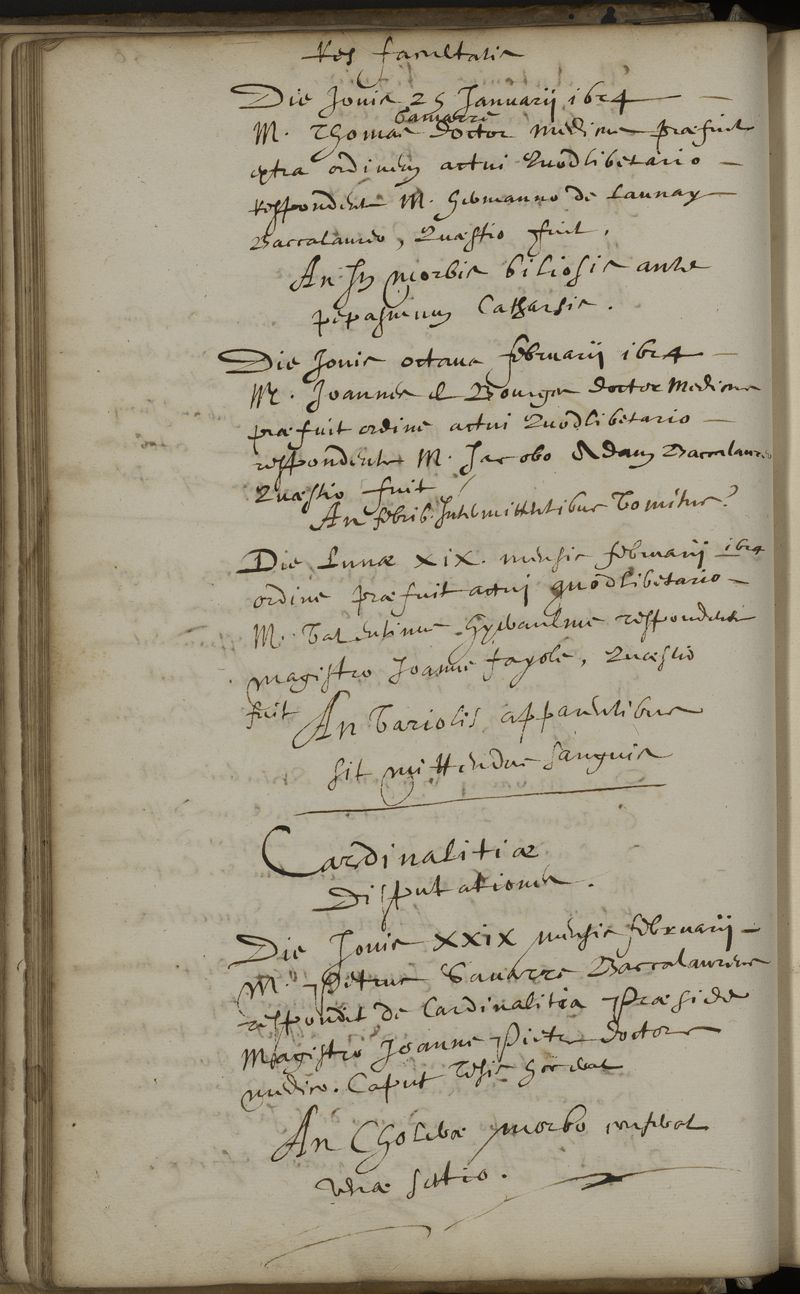 Res facultatis
Die Jovis 25 Januarii 1624
Gamarre
M. Thomas doctor medicus præfuit
extra ordinem actui Quodlibetario
respondente M. Hermanno de Launay
Baccalaureo, Quæstio fuit,
An In morbis biliosis ante
pepasmum Catharsis.
Die Jovis octava februarii 1624
M. Joannes le Bourgeu doctor Medicus
præfuit ordine actui Quodlibetario
respondente M. Jacobo Adam Baccalaureo
Quæstio fuit
An febrib. Intermittentibus Vomitus?
Die Lunæ XIX. mensis februarii 1624
ordine præfuit actui quodlibetario
M. Valentinus Hyeraulme respondente
magistro Joanne fayole, Quæstio
fuit
An Variolis apparentibus
sit mittendus sanguis
Cardinalitiæ
Disputationes.
Die Jovis XXIX mensis februarii
M. Petrus Sauarre Baccalaureus
respondit de Cardinalitia Præside
Magistro Joanne Pietre doctore
medico. Caput Thesis hoc erat
An Choleræ morbo conferat
venæ sectio.